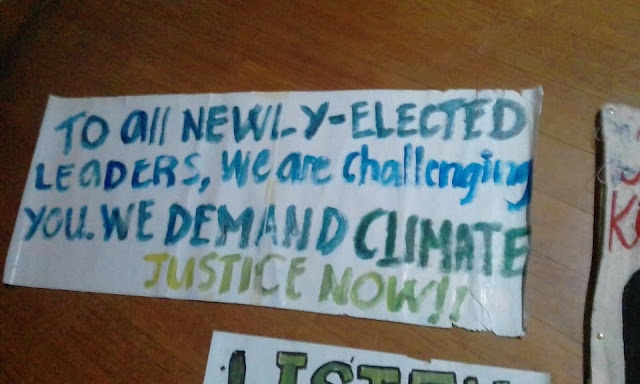 TO all NEWLY-ELECTED
LEADERS, We are challenging
YOU. WE DEMAND CLIMATE
JUSTICE NOW!!
LISTEN